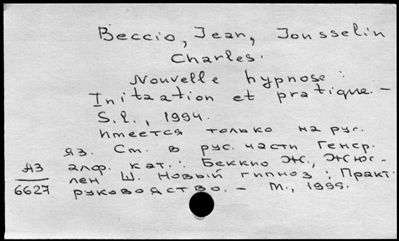 Beccio, Jean, Jousselin
Charles.
Nouvelle hypnose :
Initaation et pratique. –
S.l., 1994.
Имеется только на рус.
яз. См. в рус. части Генер.
алф. кат.: Беккио Ж., Жюс-
лен Ш. Новый гипноз : Практ.
руководство. – М., 1995.
А3
6627